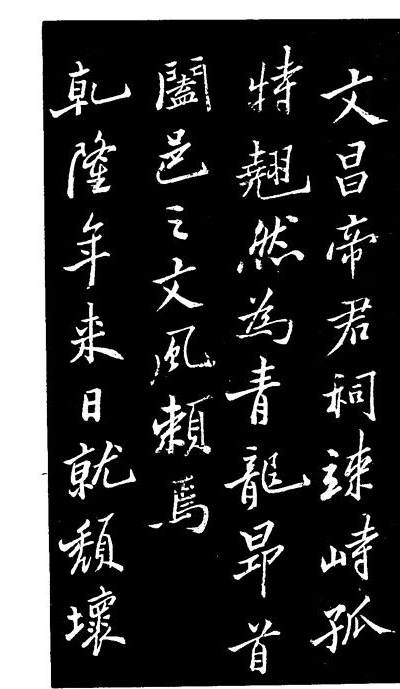 文昌帝君祠竦峙孤
特翹然為青龍昂首
闔邑之文風賴焉
乾隆年来日就頹壞